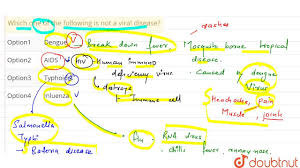 Which one of the following is not a viral disease?
Option1 Dengue V Break down fever, Mosquito borne tropical disease.
rashes
Option2 AIDS HIV - Human immuno deficiency virus
Caused by dengue Virus
Option3 Typhoid destroys Immune cell
Headaches, Pain Muscle, joint
Option4 Influenza
Salmonella Typhi
Bacteria disease
flu RNA virus
chills fever, runny nose
doubtnut